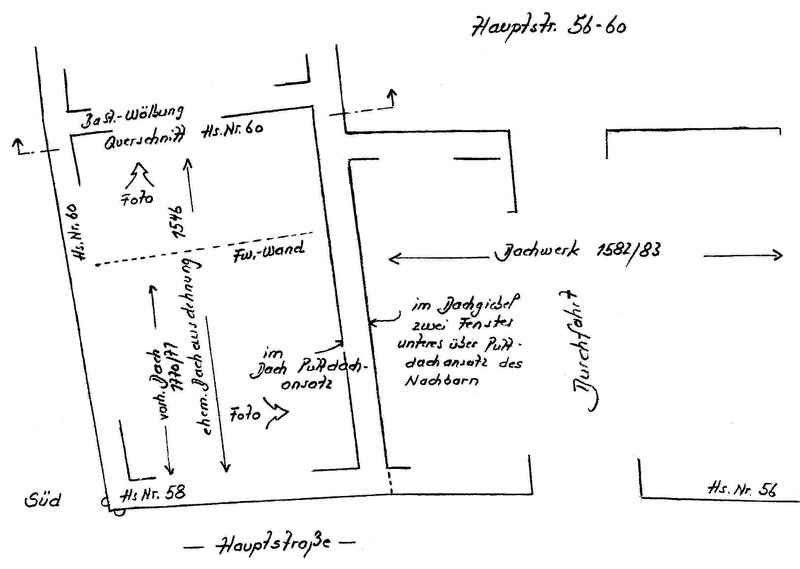 Hauptstr. 56-60
Bast.-Wölbung
Querschnitt Hs.Nr. 60
Foto
Hs.Nr. 60
1546
Fw.-Wand
Dachwerk 1582/83
vorh. Dach
1770/71
ehem. Dachausdehnung
im
Dach Pultdach-
ansatz
Foto
im Dachgiebel
zwei Fenster
unteres über Pult-
dachansatz des
Nachbarn
Durchfahrt
Süd
Hs Nr. 58
Hs.Nr. 56
— Hauptstraße —